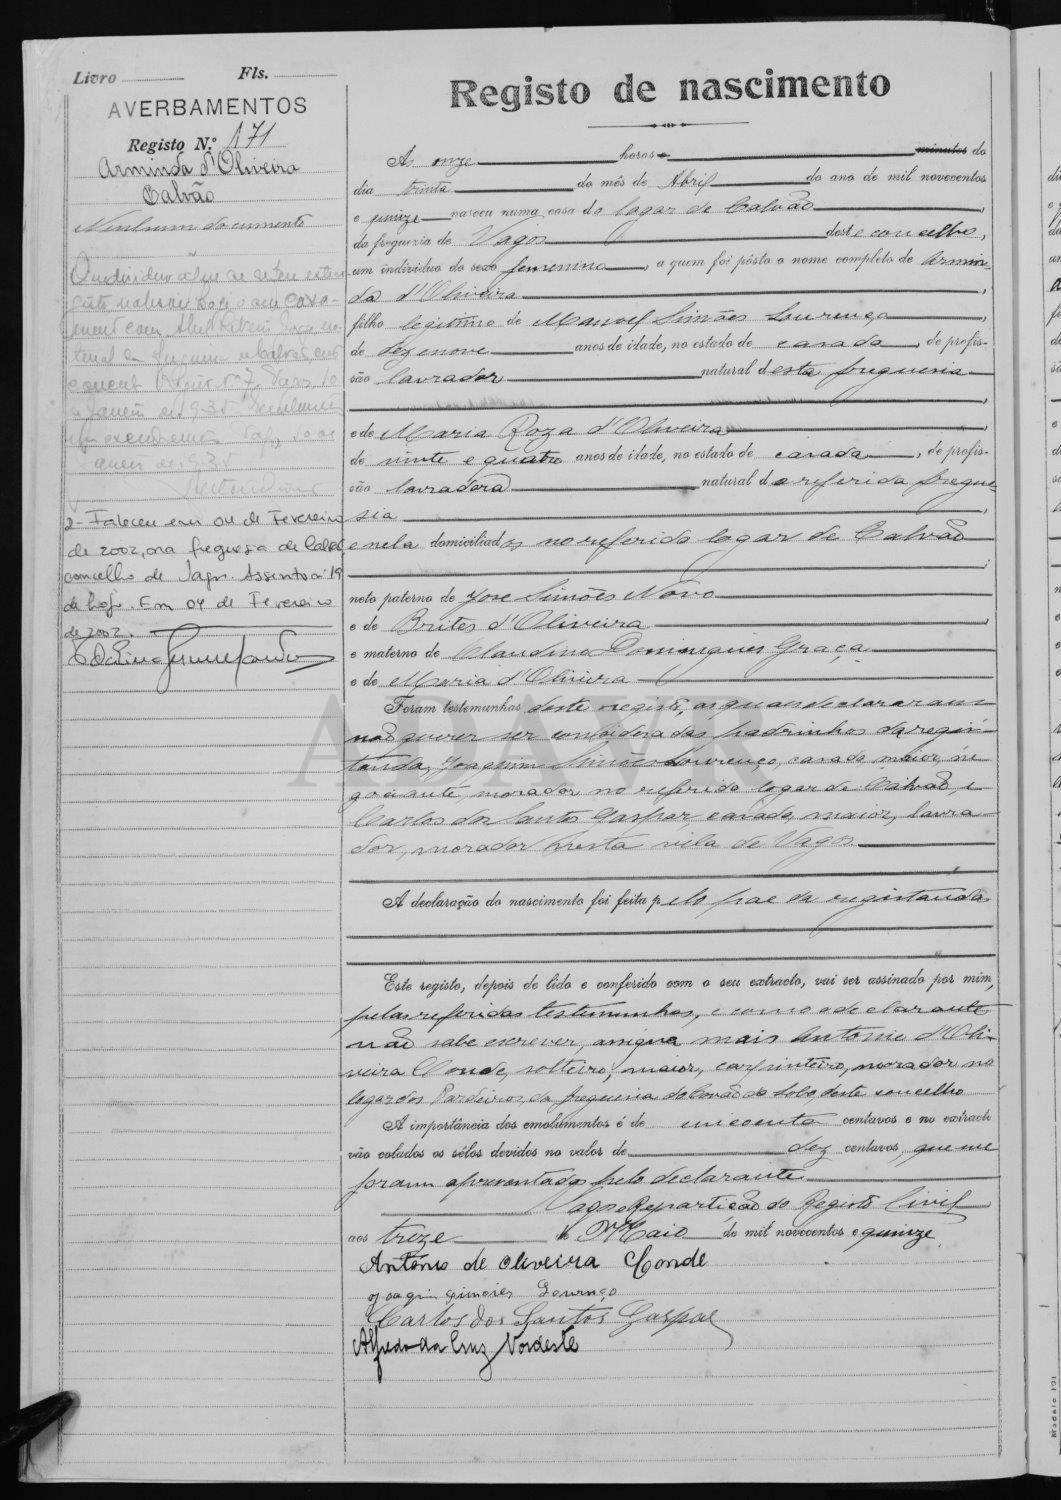 Livro Fls.
AVERBAMENTOS
Registo N.º 171
Arminda d'Oliveira
Calvão
Nenhum documento
2- Faleceu em 04 de Fevereiro
de 2002, na freguesia de Calvão
concelho de Vagos. Assento nº 19
de hoje. Em 04 de Fevereiro
de 2002.
Registo de nascimento
Ás onze horas e minutos do
dia trinta do mês de Abril do ano de mil novecentos
e quinze nasceu numa casa do logar de Calvão
da freguezia de Vagos deste concelho,
um individuo do sexo femenino, a quem foi pôsto o nome completo de Armin-
da d'Oliveira
filho legitimo de Manoel Simões Lourenço
de dezenove anos de idade, no estado de casado, de profis-
são lavrador natural desta freguesia
e de Maria Roza d'Oliveira
de vinte e quatro anos de idade, no estado de casada, de profis-
são lavradora natural da referida fregue-
sia
e nela domiciliados no referido logar de Calvão
neto paterno de José Simões Novo
e de Brites d'Oliveira
e materno de Claudino Domingues Graça
e de Maria d'Oliveira
Foram testemunhas deste registo, as quaes declararam
não querer ser consideradas padrinhos da regis-
tanda, Joaquim Simões Lourenço, casado, maior, ne-
gociante, morador no referido logar de Calvão e
Carlos dos Santos Gaspar, casado, maior, lavra-
dor, morador nesta vila de Vagos
A declaração do nascimento foi feita pelo pae da registanda
Este registo, depois de lido e conferido com o seu extracto, vai ser assinado por mim,
pelas referidas testemunhas, e como o declarante
não sabe escrever, assigna mais Antonio d'Oli-
veira Conde, solteiro, maior, carpinteiro, morador no
logar dos Pardeiros, da freguesia do Covão do Lobo deste concelho
A importância dos emolumentos é de cincoenta centavos e no extracto
vão colados os sêlos devidos no valor de dez centavos, que me
foram apresentados pelo declarante
Vagos e Repartição do Registo Civil
aos treze de Maio de mil novecentos e quinze.
António de Oliveira Conde
Joaquim Simões Lourenço
Carlos dos Santos Gaspar
Alfredo da Cruz Nordeste